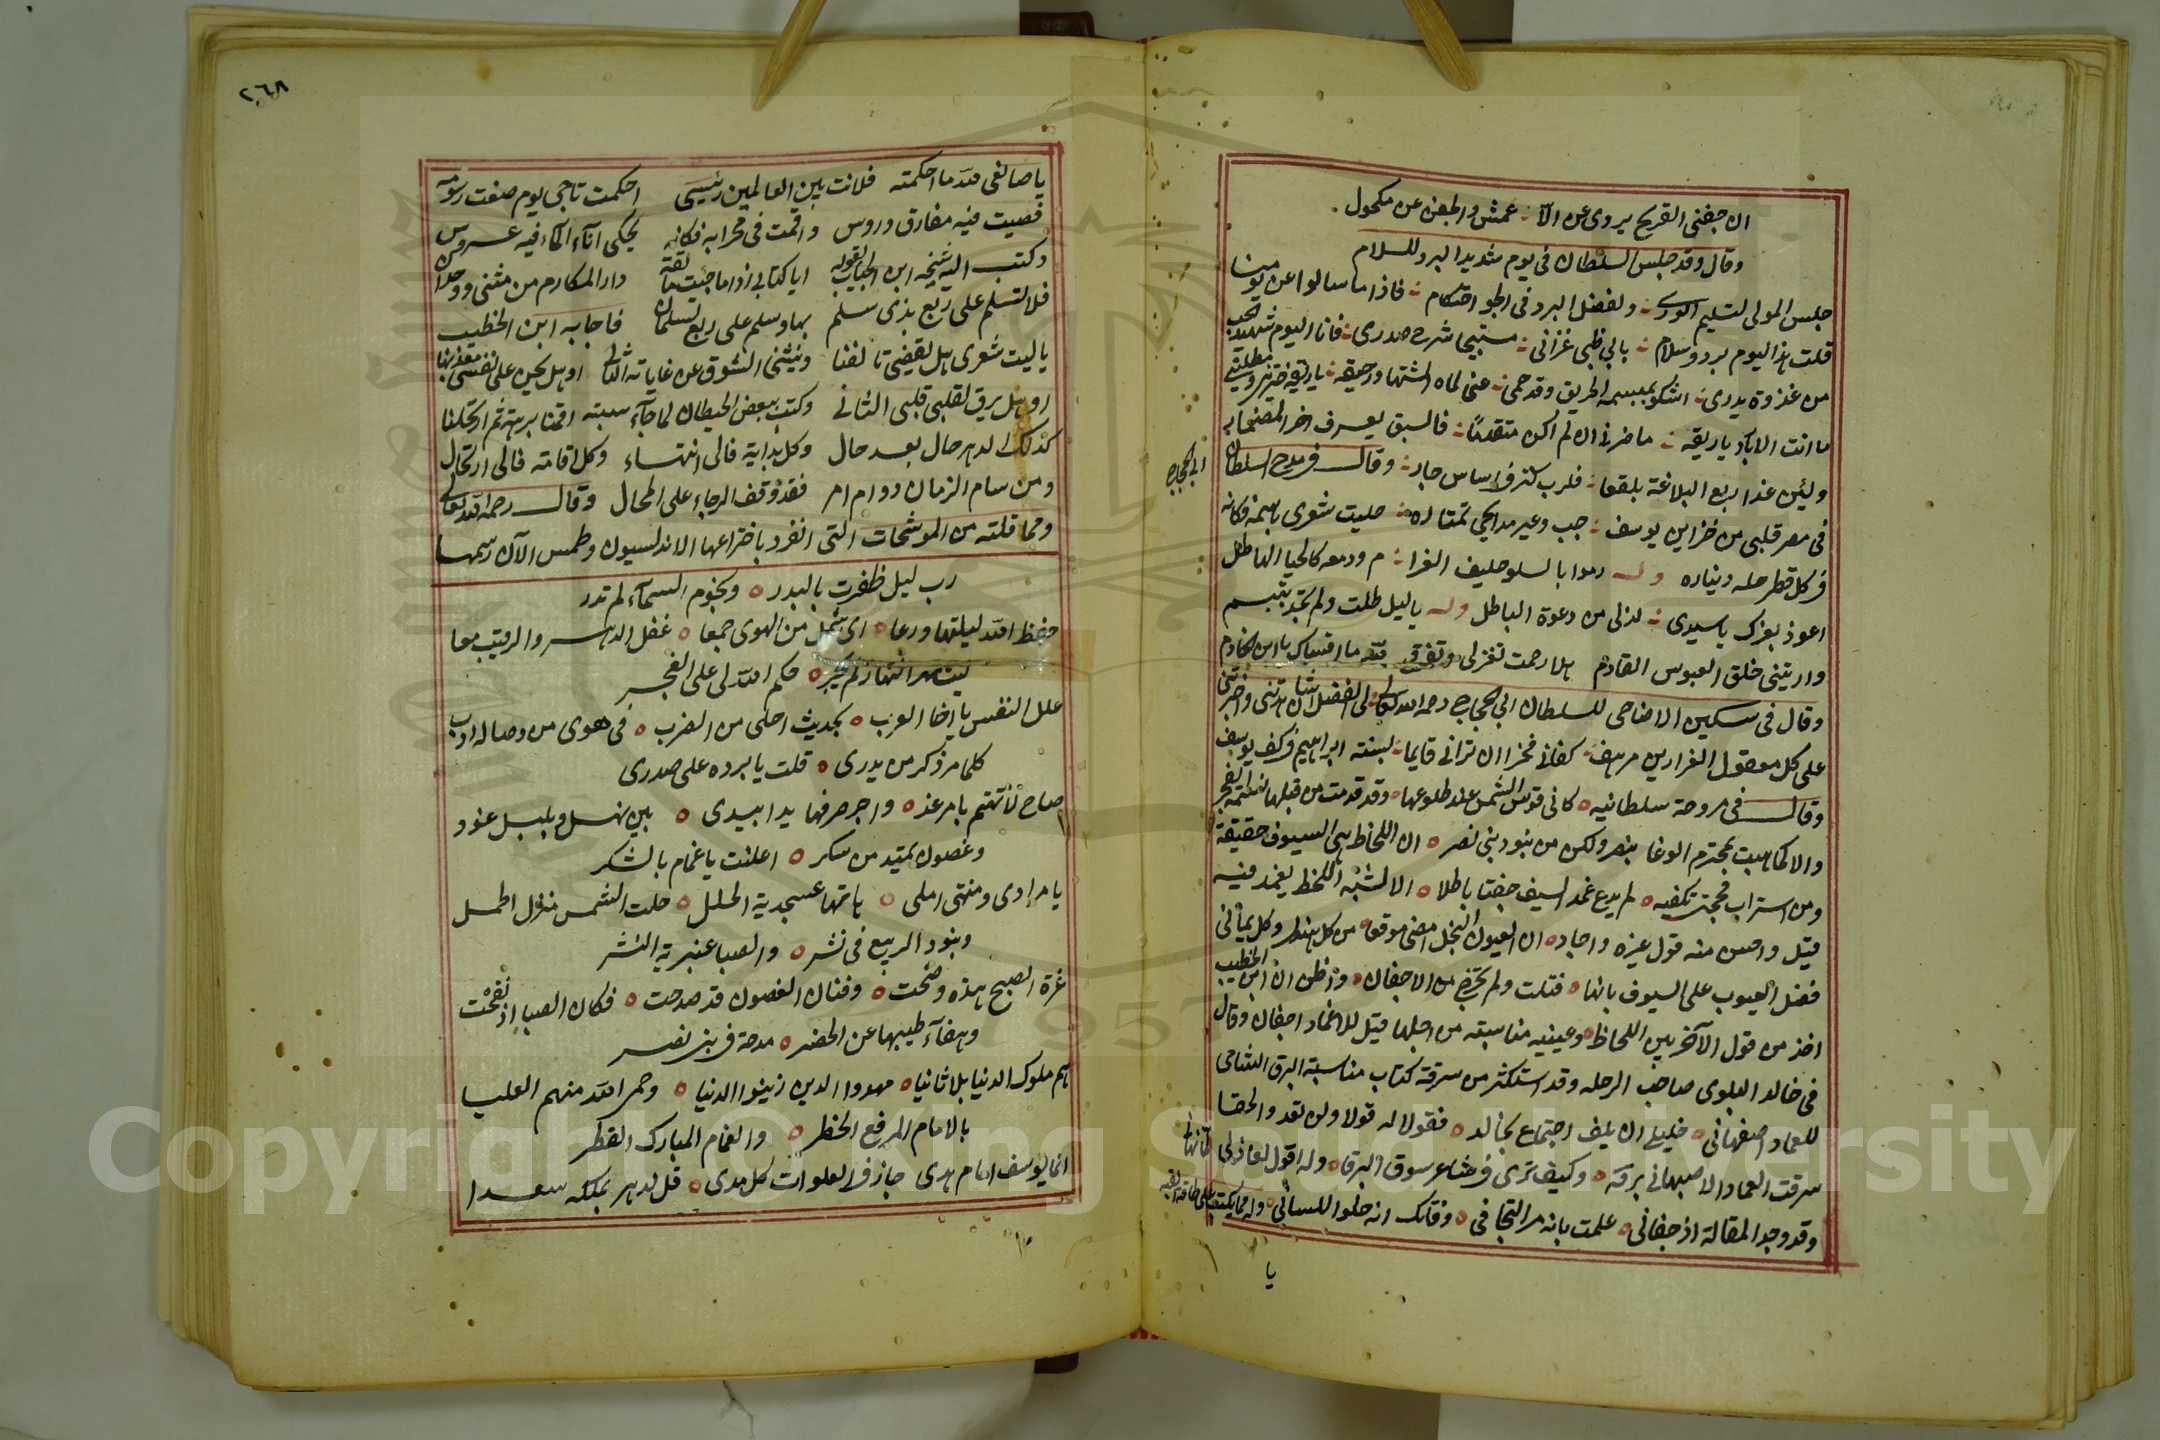 ان جفني القريح يروي عن الا؞ عمش والجفن عن مكحول
وقال وقد جلس السلطان في يوم شديد البرد للسلام
جلس المولى لتسليم الورى ؞ ولفضل البرد في الجو احتكام ؞ فاذا ما سالوا عن يومنا
قلت هذا اليوم برد وسلام ؞ بابي ظبي غزاني ؞ مستبيحا شرح صدري ؞ فانا اليوم شهيد الحب
من غزوة بدري ؞ اشكو لمبسمه الحريق وقد حمى ؞ عني لماه المشتهى ورحيقه ؞ يا ريقه
ما انت الا بارد يا ريقه ؞ ما ضرني ان لم اكن متقدما ؞ فالسبق يعرف اخر المضمار
ولئن غدا ربع البلاغة بلقعا ؞ فلرب كنز في اساس جدار ؞ وقال في مدح السلطان
ابي الحجاج
في مصر قلبي من خزاين يوسف ؞ حب وعير مدايحي تمتاره ؞ حليت شعري باسمه فكانه
في كل قطر حله ديناره وله رموا بالسلو حليف الغرا ؞ م ودمعه كالحيا الهاطل
اعوذ بعزك يا سيدي ؞ لذلي من دعوة الباطل وله يا ليل طلت ولم تجد بتبسم
واريتني خلق العبوس القادم هلا رحمت تغربي وتفرقي لله ما اقساك يا ابن الخادم
وقال في سكين الاضاحي للسلطان ابي الحجاج رحمه الله تعالى
على كل مصقول الغرارين مرهف ؞ كفاني فخرا ان تراني قايما ؞ لسنة ابراهيم في كف يوسف
وقال في مروحة سلطانيه ه كاني قوس الشمس عند طلوعها ه وقد قدمت من قبلها نسمة الفجر
والا كما هبت بمحتدم الوغا بنصر ولكن من بنود بني نصر ه ان اللحاظ هي السيوف حقيقة
ومن استراب فحجتي تكفيه ه لم يدع غمد السيف جفنا باطلا ه الا لشبه اللحظ يغمد فيه
قيل واحسن منه قول غيره واجاد ه ان العيون النجل امضى موقعا ه من كل هندي وكل يماني
فضل العيون على السيوف بانها ه قتلت ولم تخرج من الاجفان ه واظن ان ابن الخطيب
اخذ من قول الآخر بين اللحاظ وعينيه مناسبته من اجلها قيل للاغماد اجفان وقال
في خالد البلوي صاحب الرحله وقد استكثر من سرقة كتاب مناسبة البرق الشامي
للعماد اصفهاني ه خليلي ان يلف اجتماع بخالد ه فقولا له قولا ولن تعدو الحقا
سرقت العماد الاصبهاني برقه ه وكيف ترى في شاعر سرق البرقا ه وله اقول لعاذلي لما نهاني
وقد وجد المقالة اذ جفاني ه علمت بانه مر التجافي ه وفاتك انه حلو اللسان ه وله مما يكتب على طاقة القبه
يا
٢٦٨
يا صانعي لله ما احكمته فلانت بين العالمين رئيسي احكمت تاجي يوم صغت رسومه
فصيت فيه مفارق وروس واقمت في محرابه فكانه يحكي اناء الماء فيه عروس
وكتب اليه شيخه ابن الجياب بقوله ايا كتابي اذا ما جئت مالقة دار المكارم من مثنى ووحدان
فلا تسلم على ربع بذي سلم بها وسلم على ربع لسلمان فاجابه ابن الخطيب
يا ليت شعري هل يقضى تالفنا ويثني الشوق عن غاياته الثاني او هل يحن على نفسي معذبها
او هل يرق لقلبي قلبي الثاني وكتب ببعض الحيطان لما جاء سبته اقمنا برهة ثم ارتحلنا
كذلك الدهر حال بعد حال وكل بداية فالى انتهاء وكل اقامة فالى ارتحال
ومن سام الزمان دوام امر فقد وقف الرجاء على المحال وقال رحمه الله تعالى
ومما قلته من الموشحات التي انفرد باختراعها الاندلسيون وطمس الآن رسمها
رب ليل ظفرت بالبدر ه ونجوم السماء لم تدر
حفظ الله ليلتها ورعا ه اي شمل من الهوى جمعا ه غفل الدهر والرقيب معا
ليت نهر النهار لم يجر ه حكم الله لي على الفجر
علل النفس يا اخا العرب ه بحديث احلى من الضرب ه في هوى من وصاله اربي
كلما مر ذكر من يدري ه قلت يا برده على صدري
صاح لا تهتم بامر غد ه واجر صرفها يدا بيدي ه بين نهر وبلبل غرد
وغصون تميد من سكر ه اعلنت يا غمام بالشكر
يا مرادي ومنتهى املي ه هاتها عسجدية الحلل ه حلت الشمس منزل الحمل
وبنود الربيع في نشر ه والصبا عنبرية النشر
غرة الصبح هذه وضحت ه وقيان الغصون قد صدحت ه فكان الصبا اذ نفحت
وهفا طيبها عن الحضر ه مدحة في بني نصر
هم ملوك الدنيا بلا ثانيا ه مهدوا الدين زينوا الدنيا ه وحمى الله منهم العليا
بالامام المرفع الخطر ه والغمام المبارك القطر
انما يوسف امام هدى جاز في المعلوات كل مدى ه قل لدهر بملكه سعدا